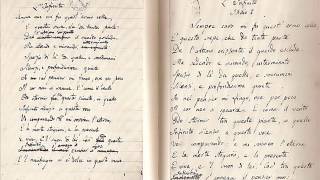 L'Infinito
Sempre caro mi fu quest'ermo colle,
E questa siepe, che da tanta parte
Ma sedendo e mirando,
Spazio di là da quella, e sovrumani
Silenzi, e profondissima quiete
Io nel pensier mi fingo, ove per poco
Il cor non si spaura. E come il vento
Odo stormir tra queste piante, io quello
Infinito silenzio a questa voce
Vo comparando: e mi sovvien l'eterno,
E le morte stagioni, e la presente
E viva, e il suon di lei. Così tra questa
E il naufragar m'è dolce in questo mare.
L'Infinito
Sempre caro mi fu quest'ermo colle,
E questa siepe che da tanta parte
De l'ultimo orizzonte il guardo esclude.
Ma sedendo e mirando, interminato
Spazio di là da quella, e sovrumani
Silenzi, e profondissima quiete
Io nel pensier mi fingo, ove per poco
Il cor non si spaura. E come il vento
Odo stormir tra queste piante, io quello
Infinito silenzio a questa voce
Vo comparando: e mi sovvien l'eterno,
E le morte stagioni, e la presente
E viva, e 'l suon di lei. Così tra questa
s'annega il pensier mio
E 'l naufragar m'è dolce in questo mare.